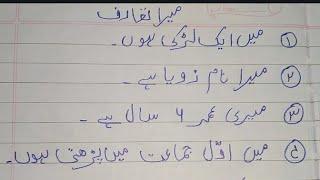 میرا تعارف
① میں ایک لڑکی ہوں۔
② میرا نام زویا ہے۔
③ میری عمر 6 سال ہے۔
④ میں اوّل جماعت میں پڑھتی ہوں۔